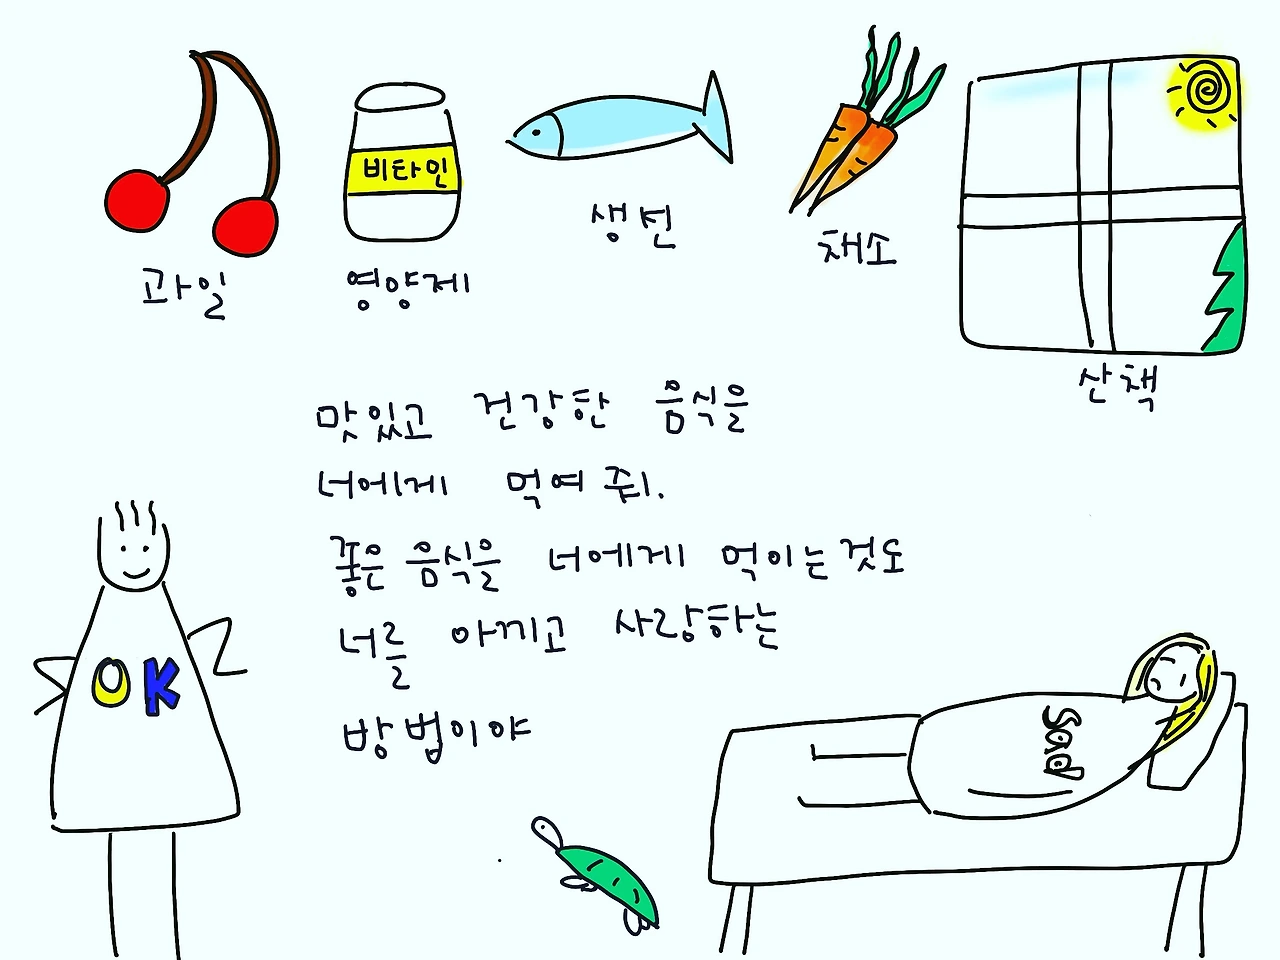 비타민
과일
영양제
생선
채소
산책
맛있고 건강한 음식을
너에게 먹여 줘.
좋은 음식을 너에게 먹이는 것도
너를 아끼고 사랑하는
방법이야
OK
Sad